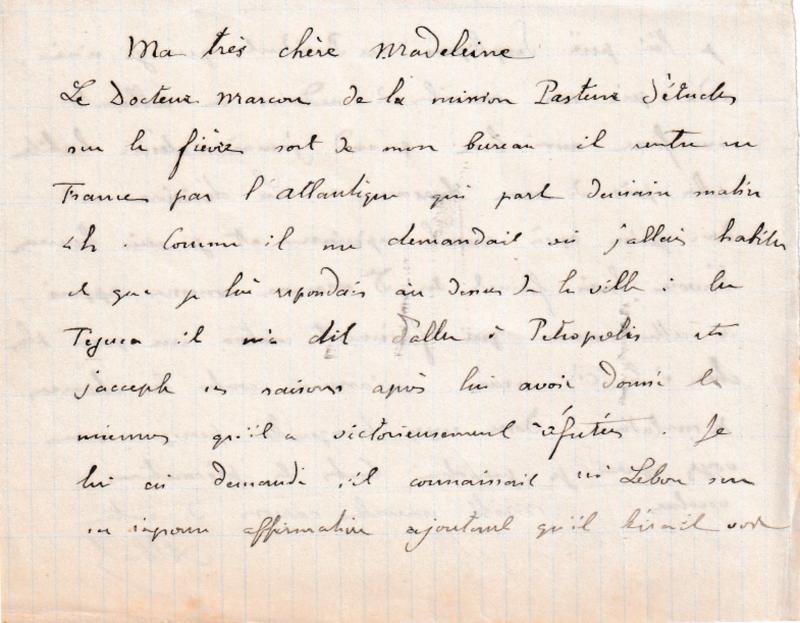 Ma très chère Madeleine
Le Docteur Marcou de la mission Pasteur d'études
sur la fièvre sort de mon bureau il rentre en
France par l'Atlantique qui part demain matin
4h. Comme il me demandait où j'allais habiter
et que je lui repondais au dessus de la ville à la
Tijuca il m'a dit d'aller à Petropolis et
j'accepte ses raisons après lui avoir donné les
miennes qu'il a victorieusement réfutées. Je
lui ai demandé s'il connaissait Lebon sur
sa réponse affirmative ajoutant qu'il tirait